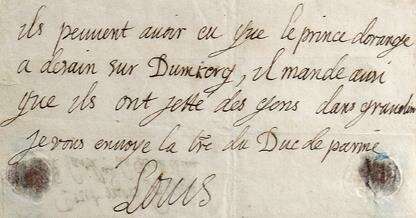 ils peuvent avoir eu que le prince dorange
a desain sur Dunkerq, il mande aussi
que ils ont jetté des gens dans
je vous envoye la tre du Duc de parme
Louis